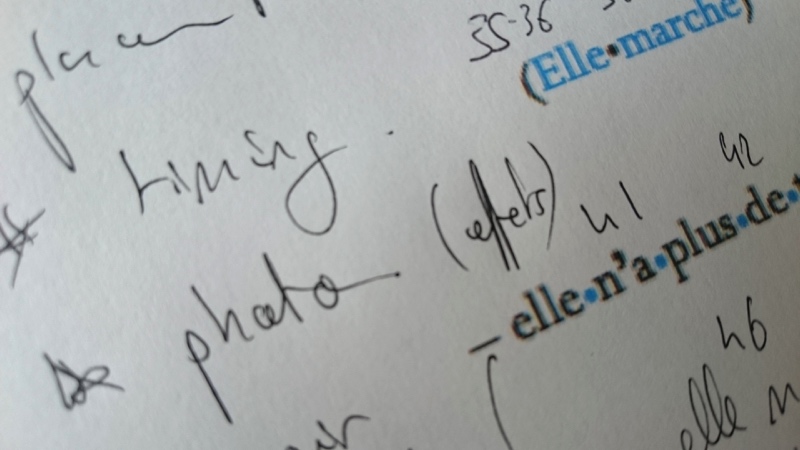 35-36
(Elle•marche)
* timing.
(effets) 41 42
_ elle•n'a•plus•de•
* photo
46
elle